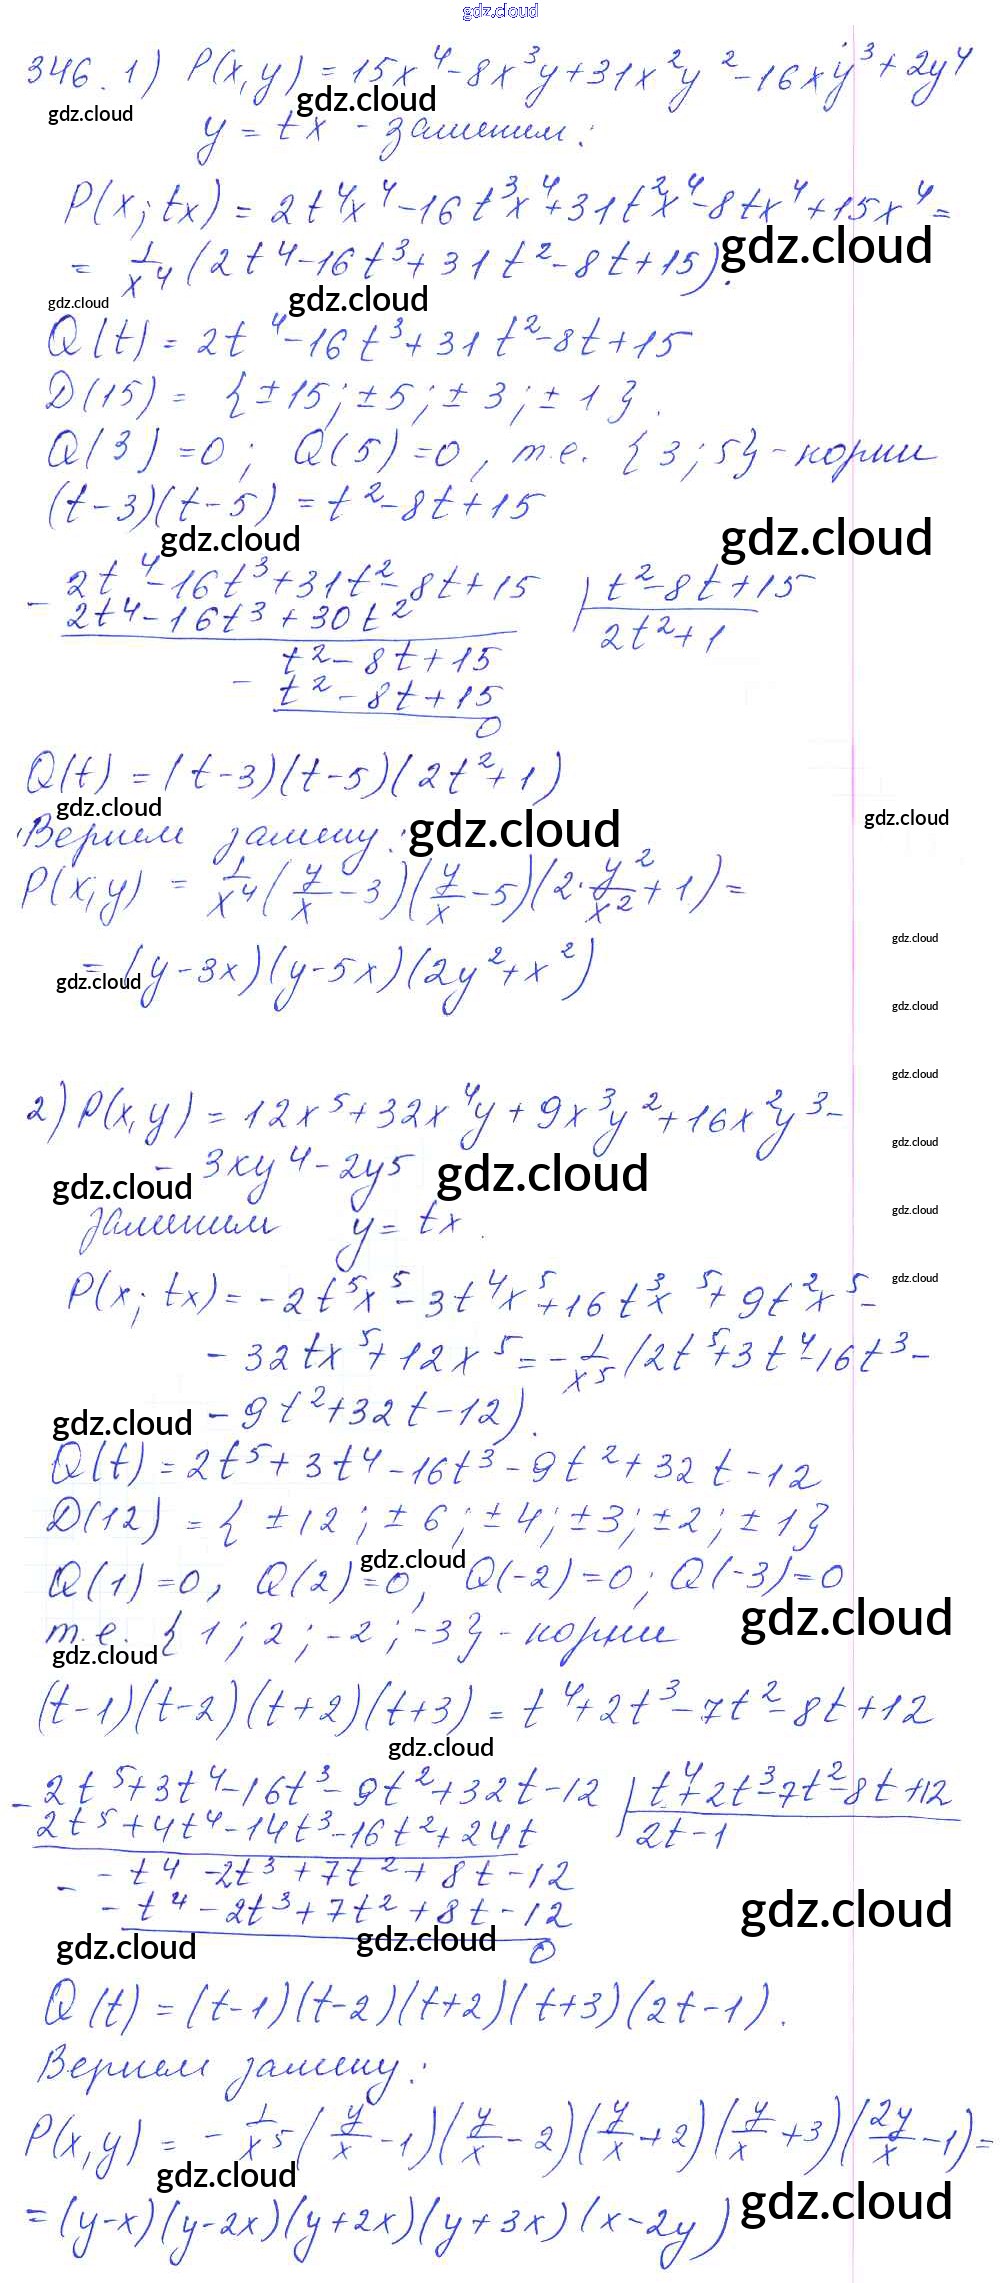 gdz.cloud
346. 1) P(x,y) = 15x⁴ - 8x³y + 31x²y² - 16xy³ + 2y⁴
gdz.cloud gdz.cloud
y = tx - заменим:
P(x; tx) = 2t⁴x⁴ - 16t³x⁴ + 31t²x⁴ - 8tx⁴ + 15x⁴ =
gdz.cloud
= 1/x⁴ (2t⁴ - 16t³ + 31t² - 8t + 15).
gdz.cloud gdz.cloud
Q(t) = 2t⁴ - 16t³ + 31t² - 8t + 15
D(15) = {±15; ±5; ±3; ±1}.
Q(3) = 0; Q(5) = 0, т.е. {3; 5} - корни
(t-3)(t-5) = t² - 8t + 15
gdz.cloud gdz.cloud
- 2t⁴ - 16t³ + 31t² - 8t + 15 | t² - 8t + 15
2t⁴ - 16t³ + 30t² 2t² + 1
t² - 8t + 15
- t² - 8t + 15
0
Q(t) = (t-3)(t-5)(2t²+1)
gdz.cloud gdz.cloud gdz.cloud
Вернем замену:
P(x;y) = 1/x⁴ (y/x - 3)(y/x - 5)(2·y²/x² + 1) =
gdz.cloud
= (y-3x)(y-5x)(2y²+x²)
gdz.cloud
gdz.cloud
gdz.cloud
2) P(x,y) = 12x⁵ + 32x⁴y + 9x³y² + 16x²y³ -
gdz.cloud
- 3xy⁴ - 2y⁵
gdz.cloud gdz.cloud
заменим y = tx.
gdz.cloud
P(x; tx) = -2t⁵x⁵ - 3t⁴x⁵ + 16t³x⁵ + 9t²x⁵ -
gdz.cloud
- 32tx⁵ + 12x⁵ = -1/x⁵ (2t⁵ + 3t⁴ - 16t³ -
- 9t² + 32t - 12).
gdz.cloud
Q(t) = 2t⁵ + 3t⁴ - 16t³ - 9t² + 32t - 12
D(12) = {±12; ±6; ±4; ±3; ±2; ±1}
gdz.cloud
Q(1) = 0, Q(2) = 0, Q(-2) = 0; Q(-3) = 0
gdz.cloud
т.е. {1; 2; -2; -3} - корни
gdz.cloud
(t-1)(t-2)(t+2)(t+3) = t⁴ + 2t³ - 7t² - 8t + 12
gdz.cloud
- 2t⁵ + 3t⁴ - 16t³ - 9t² + 32t - 12 | t⁴ + 2t³ - 7t² - 8t + 12
2t⁵ + 4t⁴ - 14t³ - 16t² + 24t 2t - 1
- t⁴ - 2t³ + 7t² + 8t - 12
- - t⁴ - 2t³ + 7t² + 8t - 12
gdz.cloud
gdz.cloud gdz.cloud
0
Q(t) = (t-1)(t-2)(t+2)(t+3)(2t-1).
Вернем замену:
P(x,y) = -1/x⁵ (y/x - 1)(y/x - 2)(y/x + 2)(y/x + 3)(2y/x - 1) =
gdz.cloud gdz.cloud
= (y-x)(y-2x)(y+2x)(y+3x)(x-2y)